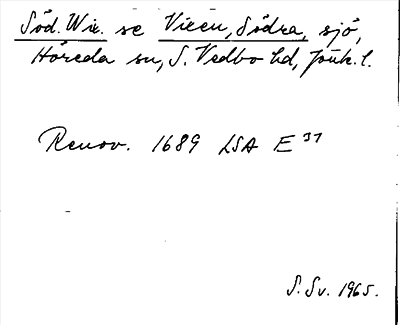 Söd. Wix. se Vixen, Södra, sjö,
Höreda sn, S. Vedbo hd, Jönk. l.
Renov. 1689 LSA E 37
S. Sv. 1965.